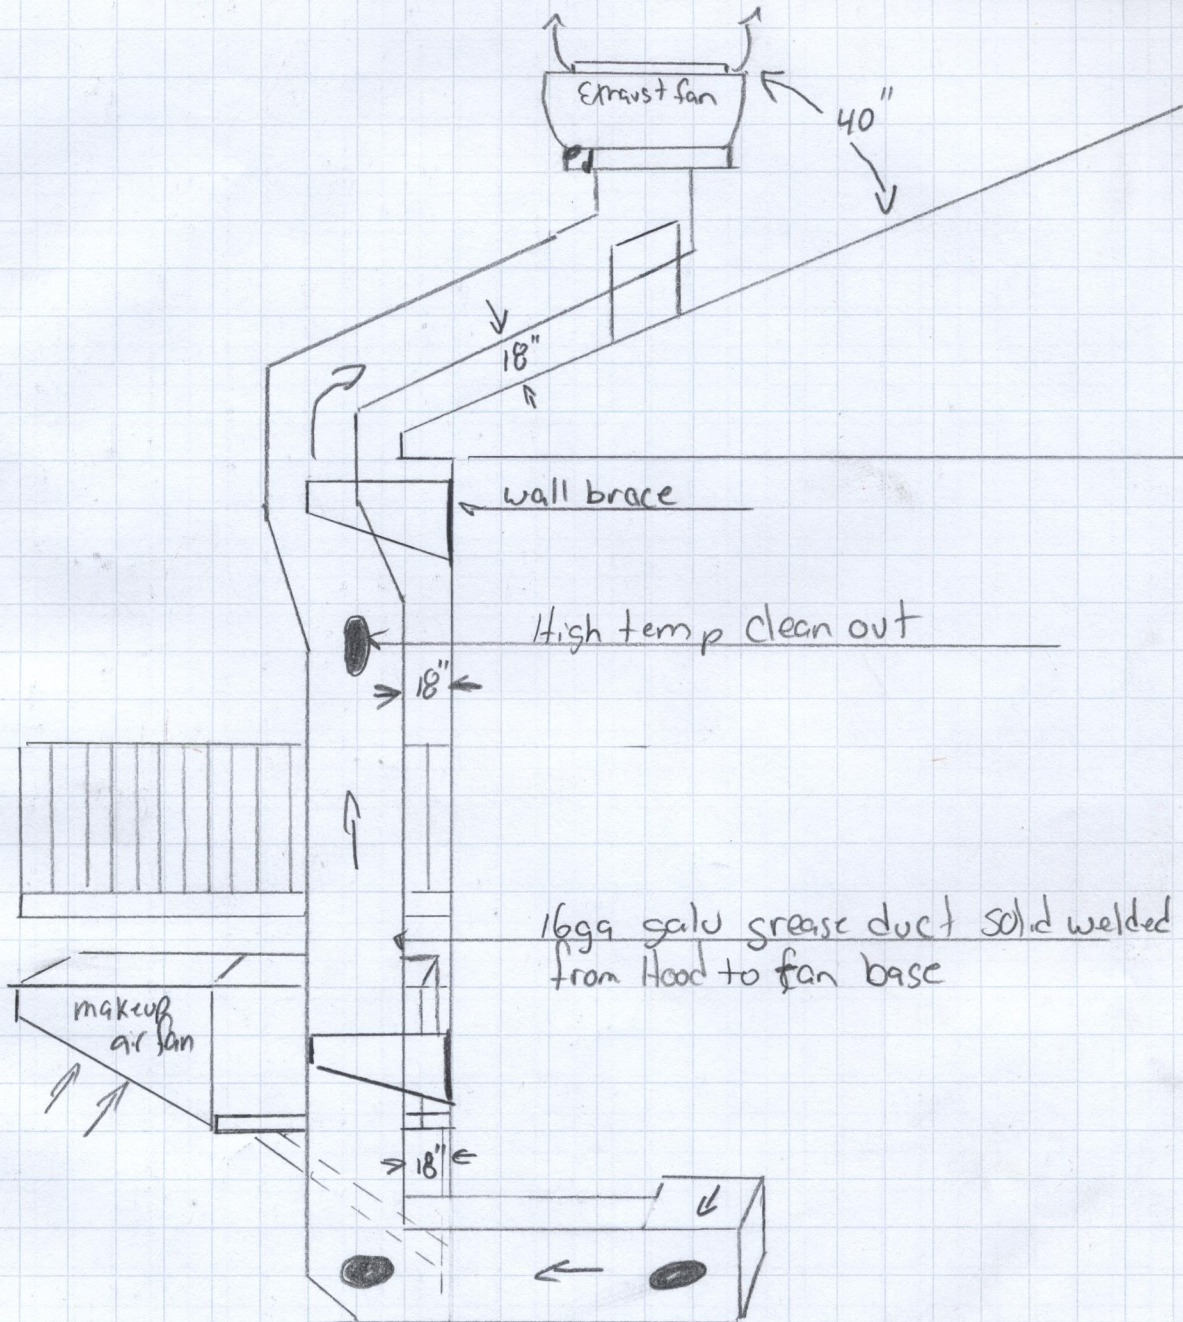 Exhaust fan
40"
18"
wall brace
High temp clean out
18"
16ga galv grease duct solid welded
from Hood to fan base
makeup
air fan
18"